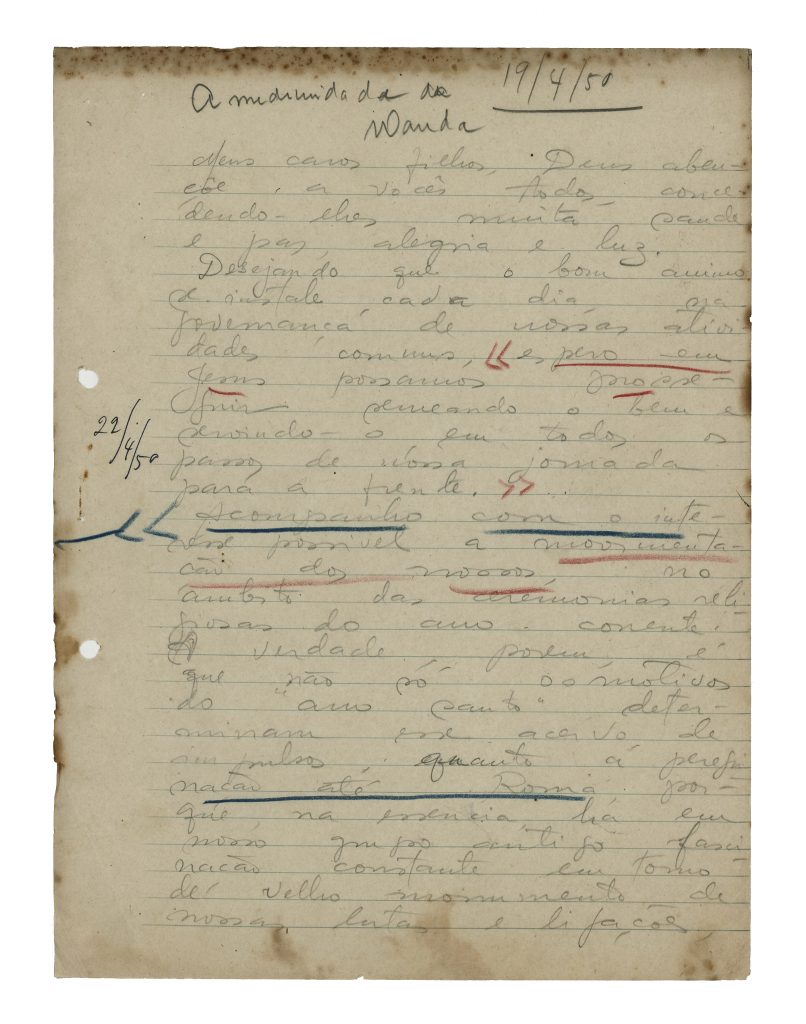 A mediunidade da
Wanda
19/4/50
Meus caros filhos, Deus aben-
çoe a vocês todos, conce-
dendo-lhes muita saude
e paz, alegria e luz.
Desejando que o bom animo
se instale, cada dia, na
governança de nossas ativi-
dades comuns, « espero em
Jesus possamos prosse-
guir semeando o bem e
servindo-o em todos os
passos de nossa jornada
para a frente. »
22/4/50
« Acompanho com o inte-
resse possivel a movimenta-
ção dos nossos no
ambito das ceremonias reli-
giosas do ano corrente.
A verdade porem é
que não só os motivos
do "ano santo" deter-
minam esse acervo de
impulsos, quanto á peregri
nação até Roma, por-
que, na essencia, há em
nosso grupo antigo fasci
nação constante em torno
de velho monumento de
nossas lutas e ligações,